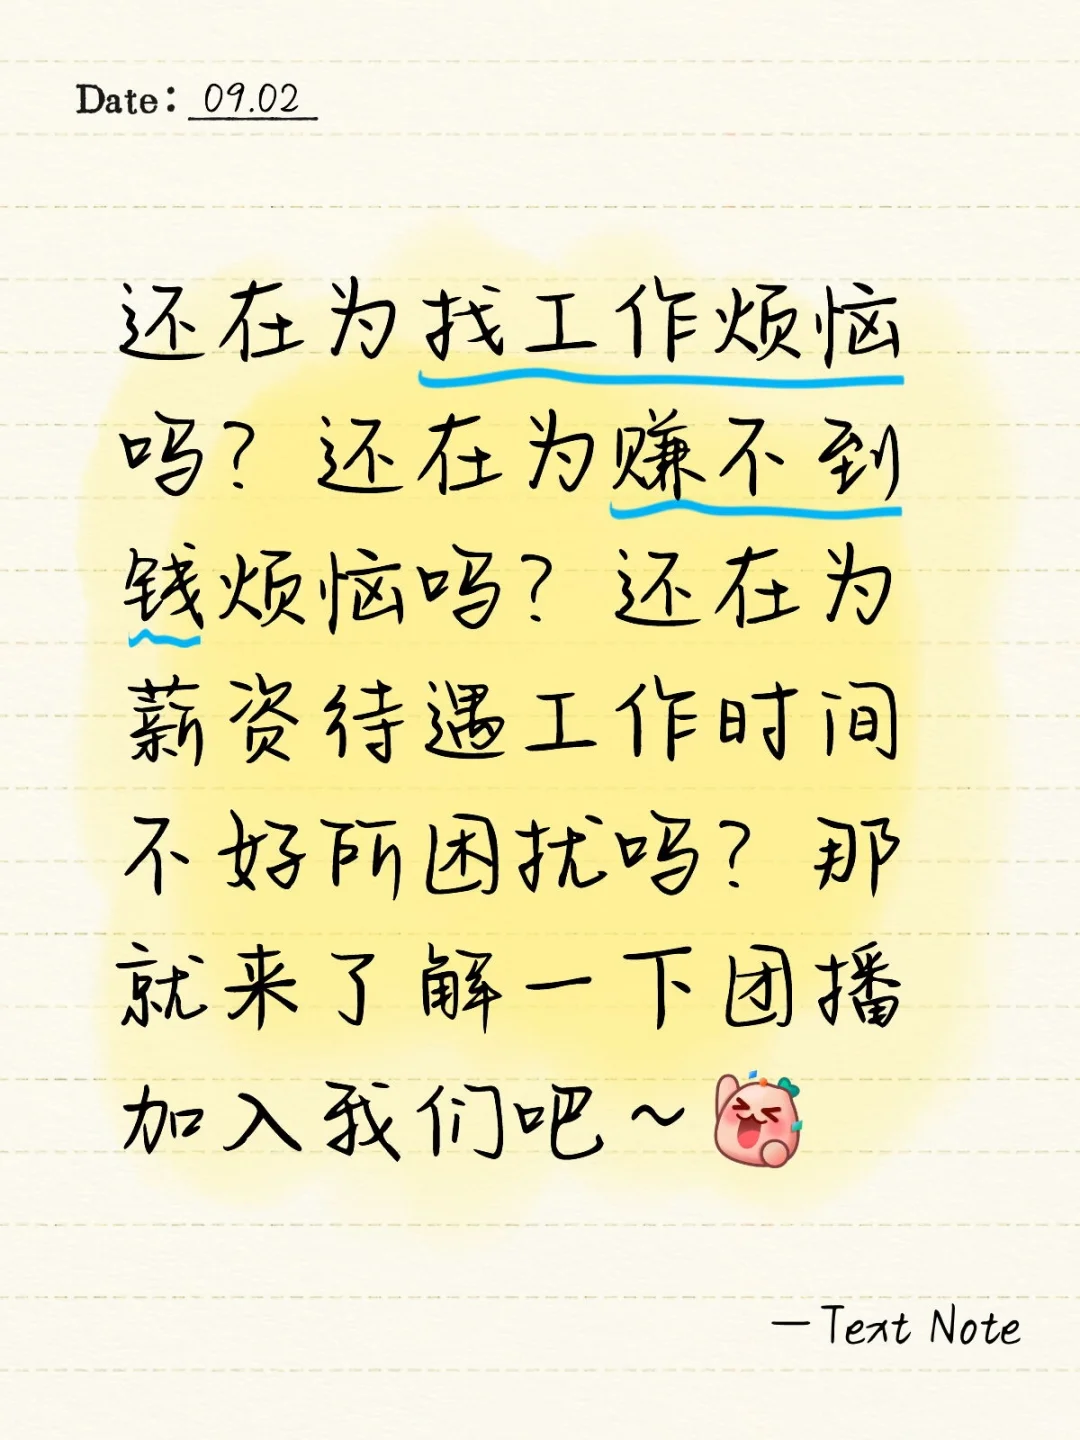 Date: 09.02
还在为找工作烦恼
吗？还在为赚不到
钱烦恼吗？还在为
薪资待遇工作时间
不好所困扰吗？那
就来了解一下团播
加入我们吧～
—Text Note